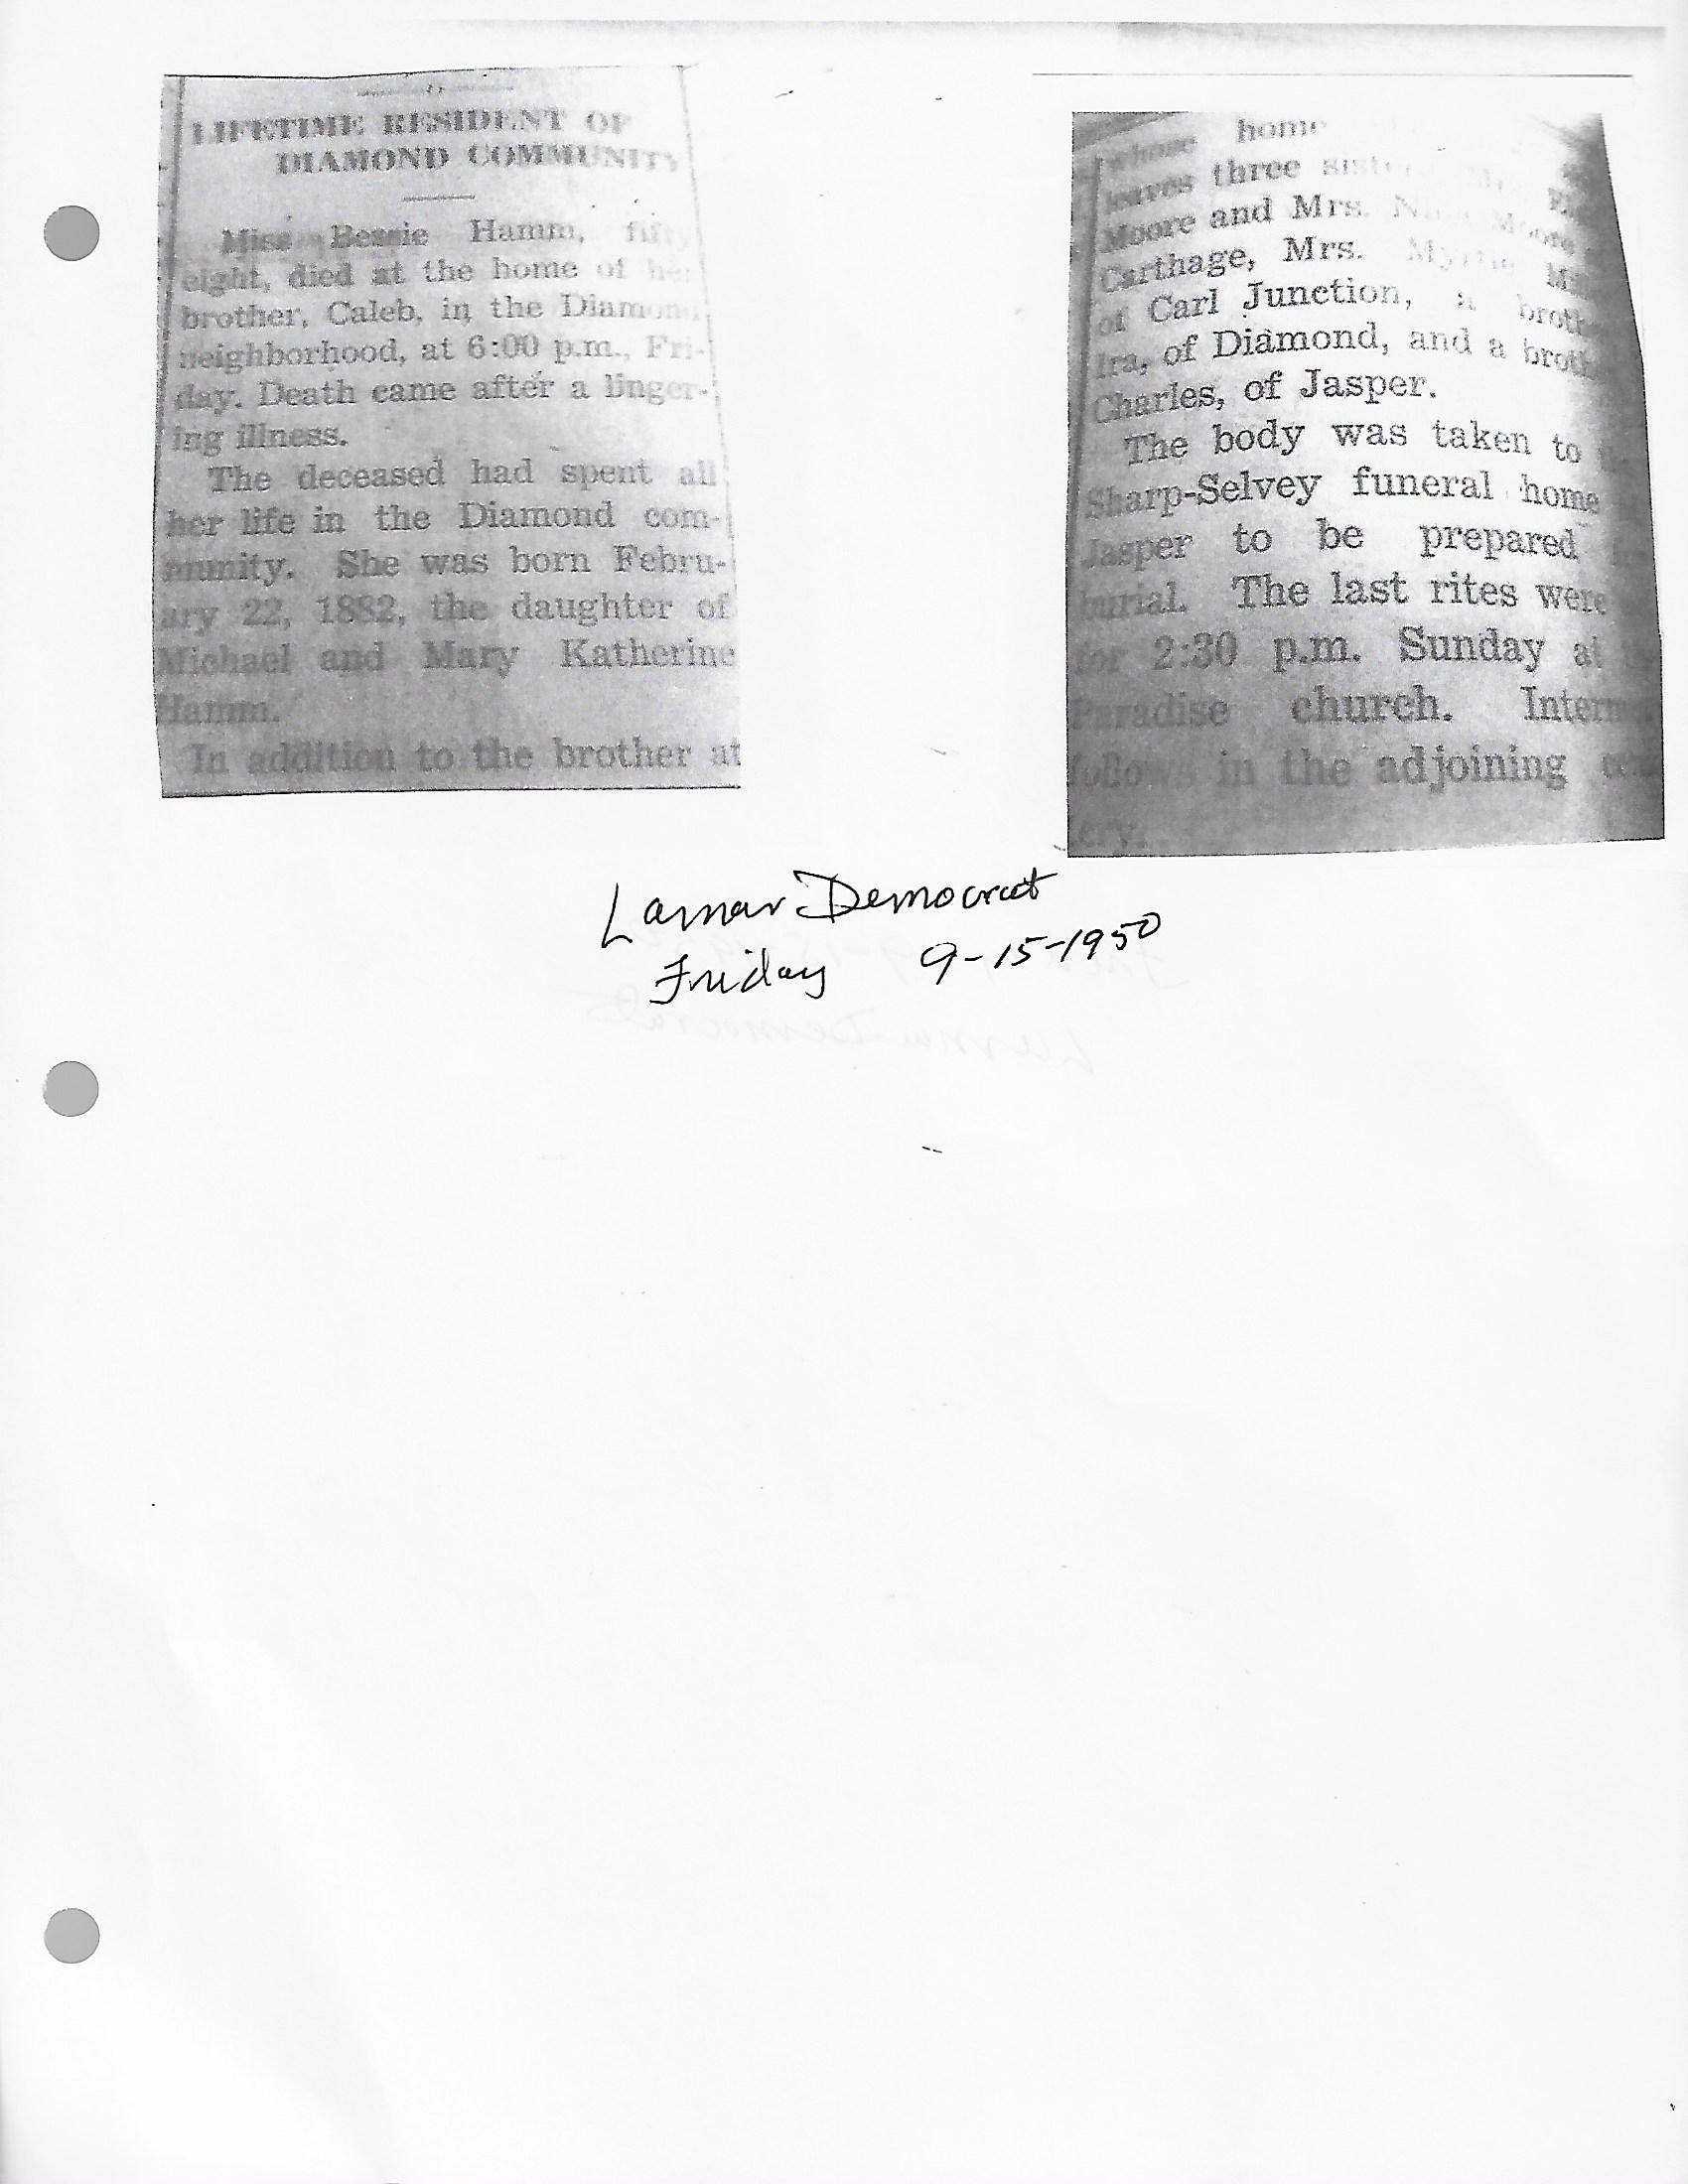 LIFETIME RESIDENT OF
DIAMOND COMMUNITY
Miss Bessie Hamm, fifty
eight, died at the home of her
brother, Caleb, in the Diamond
neighborhood, at 6:00 p.m., Fri-
day. Death came after a linger-
ing illness.
The deceased had spent all
her life in the Diamond com-
munity. She was born Febru-
ary 22, 1882, the daughter of
Michael and Mary Katherine
Hamm.
In addition to the brother at
whose home
leaves three
Moore and Mrs. Moore
Carthage, Mrs.
of Carl Junction, a broth
Ira, of Diamond, and a broth
Charles, of Jasper.
The body was taken to
Sharp-Selvey funeral home
Jasper to be prepared
burial. The last rites were
for 2:30 p.m. Sunday at
Paradise church. Interm
follows in the adjoining cem
ery.
Lamar Democrat
Friday 9-15-1950